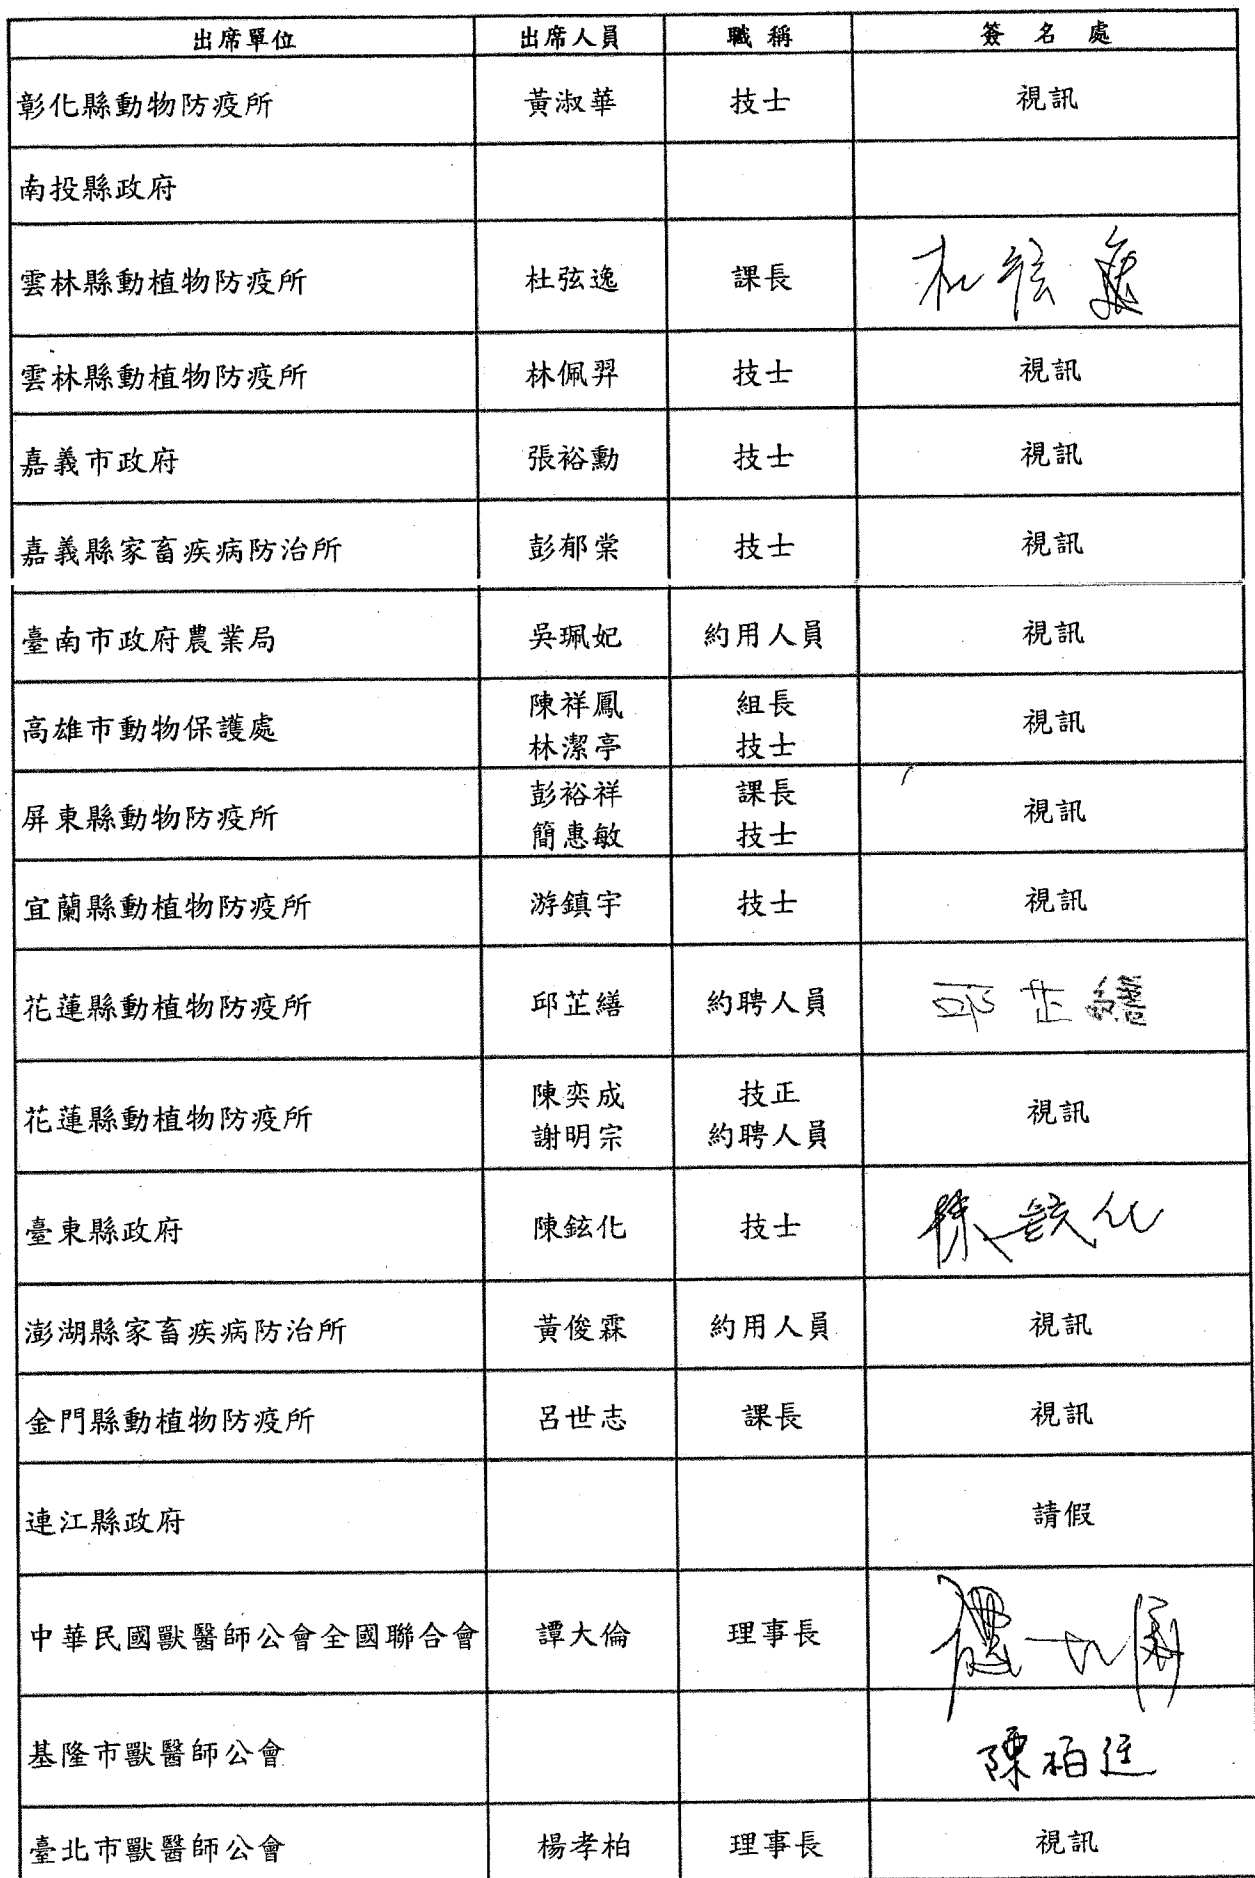 出席單位 出席人員 職稱 簽名處
彰化縣動物防疫所 黃淑華 技士 視訊
南投縣政府
雲林縣動植物防疫所 杜弦逸 課長 杜弦逸
雲林縣動植物防疫所 林佩羿 技士 視訊
嘉義市政府 張裕勳 技士 視訊
嘉義縣家畜疾病防治所 彭郁棠 技士 視訊
臺南市政府農業局 吳珮妃 約用人員 視訊
高雄市動物保護處 陳祥鳳 組長 視訊
林潔亭 技士
屏東縣動物防疫所 彭裕祥 課長 視訊
簡惠敏 技士
宜蘭縣動植物防疫所 游鎮宇 技士 視訊
花蓮縣動植物防疫所 邱芷繕 約聘人員 邱芷繕
花蓮縣動植物防疫所 陳奕成 技正 視訊
謝明宗 約聘人員
臺東縣政府 陳鉉化 技士 陳鉉化
澎湖縣家畜疾病防治所 黃俊霖 約用人員 視訊
金門縣動植物防疫所 呂世志 課長 視訊
連江縣政府 請假
中華民國獸醫師公會全國聯合會 譚大倫 理事長
基隆市獸醫師公會 陳柏
臺北市獸醫師公會 楊孝柏 理事長 視訊